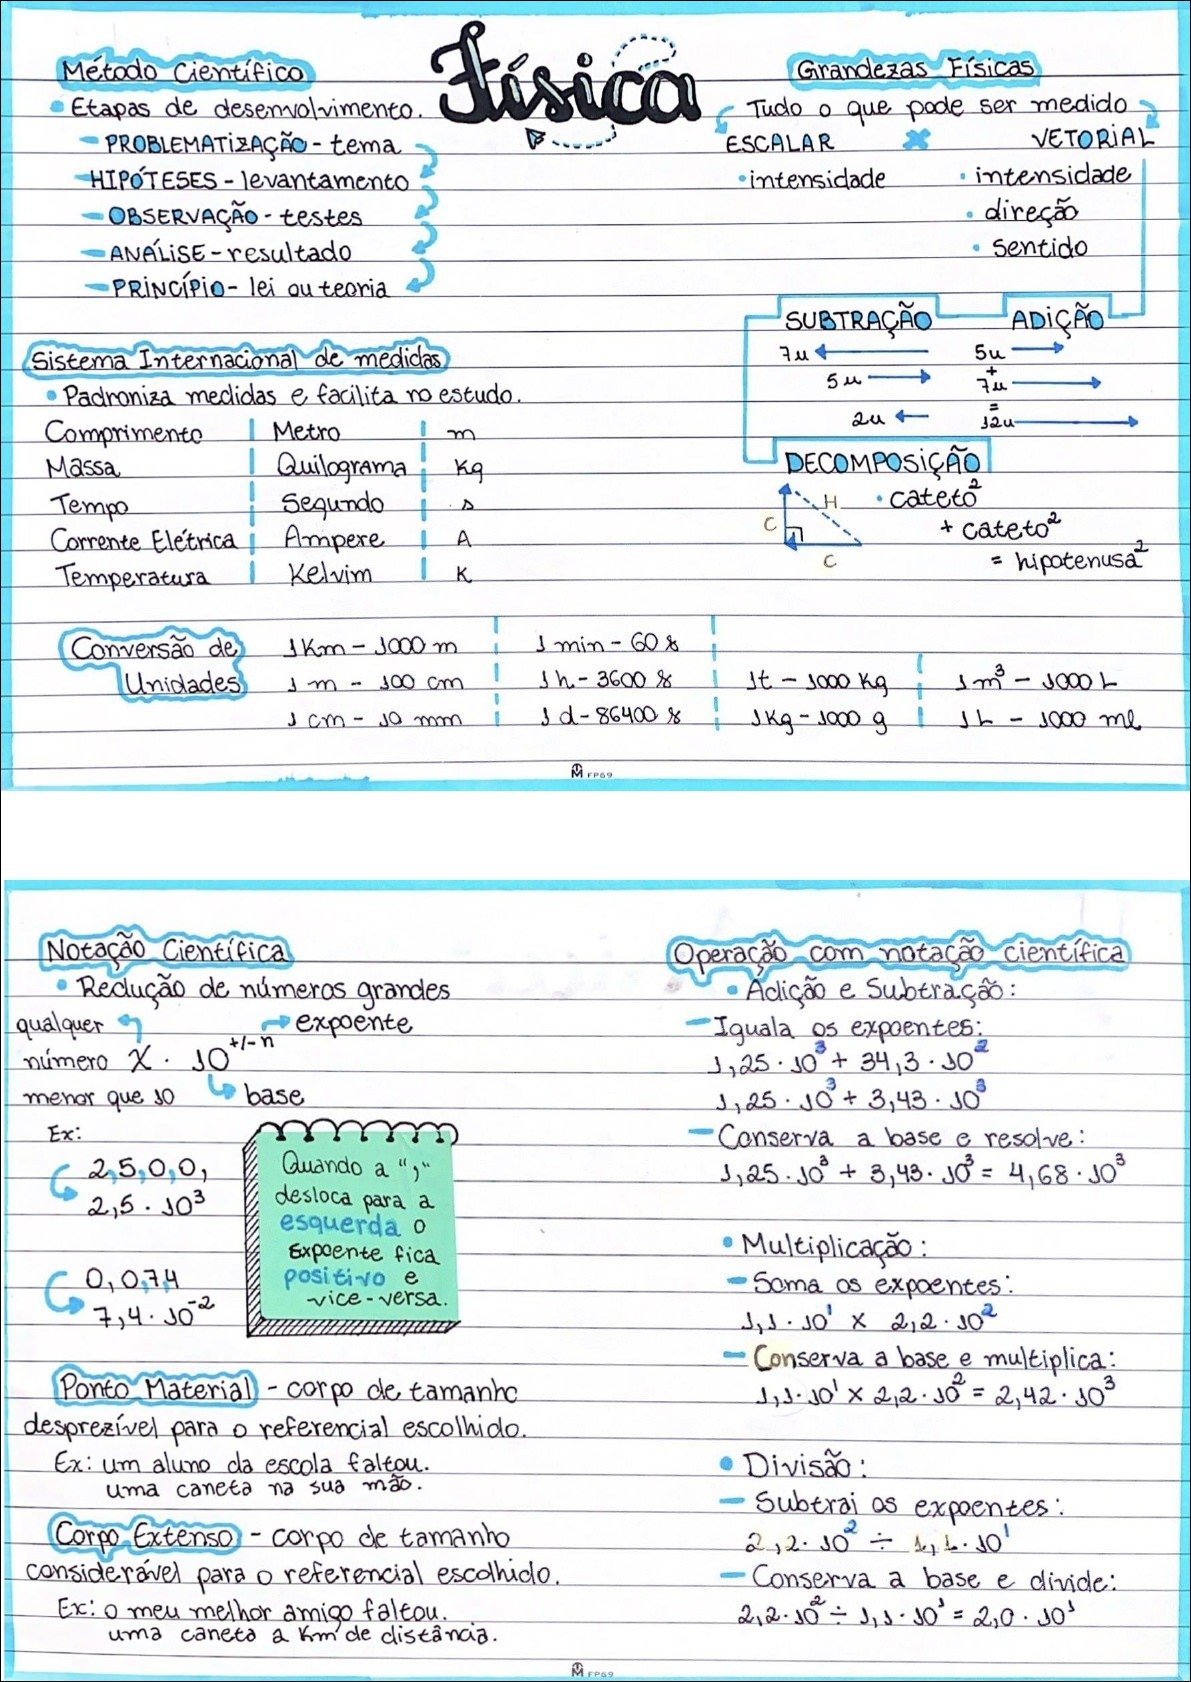 Física
Método Científico
• Etapas de desenvolvimento.
- PROBLEMATIZAÇÃO - tema
- HIPÓTESES - levantamento
- OBSERVAÇÃO - testes
- ANÁLISE - resultado
- PRINCÍPIO - lei ou teoria
Grandezas Físicas
Tudo o que pode ser medido
ESCALAR x VETORIAL
• intensidade
• intensidade
• direção
• sentido
SUBTRAÇÃO
7u
5u
2u
ADIÇÃO
5u
+
7u
=
12u
DECOMPOSIÇÃO
C
H
C
• cateto²
+ cateto²
= hipotenusa²
Sistema Internacional de medidas
• Padroniza medidas e facilita no estudo.
Comprimento | Metro | m
Massa | Quilograma | Kg
Tempo | Segundo | s
Corrente Elétrica | Ampere | A
Temperatura | Kelvim | K
Conversão de
Unidades
1 Km - 1000 m
1 m - 100 cm
1 cm - 10 mm
1 min - 60 s
1 h - 3600 s
1 d - 86400 s
1t - 1000 Kg
1Kg - 1000 g
1 m³ - 1000 L
1L - 1000 ml
M FP69
Notação Científica
• Redução de números grandes
qualquer
expoente
número X · 10^+/-n
menor que 10
base
Ex:
2,5,0,0,
2,5 · 10³
0,0,7,4
7,4 · 10⁻²
Quando a ","
desloca para a
esquerda o
Expoente fica
positivo e
vice-versa.
Ponto Material - corpo de tamanho
desprezível para o referencial escolhido.
Ex: um aluno da escola faltou.
uma caneta na sua mão.
Corpo Extenso - corpo de tamanho
considerável para o referencial escolhido.
Ex: o meu melhor amigo faltou.
uma caneta a Km de distância.
Operação com notação científica
• Adição e Subtração:
- Iguala os expoentes:
1,25 · 10³ + 34,3 · 10²
1,25 · 10³ + 3,43 · 10³
- Conserva a base e resolve:
1,25 · 10³ + 3,43 · 10³ = 4,68 · 10³
• Multiplicação:
- Soma os expoentes:
1,1 · 10¹ x 2,2 · 10²
- Conserva a base e multiplica:
1,1 · 10¹ x 2,2 · 10² = 2,42 · 10³
• Divisão:
- Subtrai os expoentes:
2,2 · 10² ÷ 1,1 · 10¹
- Conserva a base e divide:
2,2 · 10² ÷ 1,1 · 10¹ = 2,0 · 10¹
M FP69